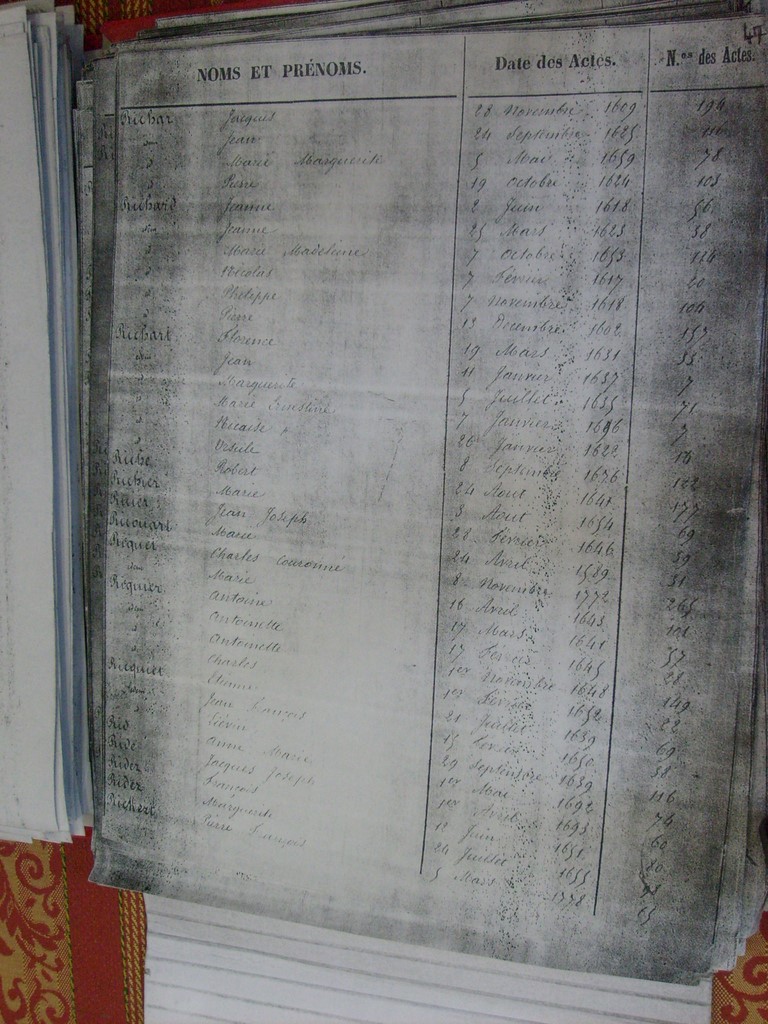 47
NOMS ET PRÉNOMS. Date des Actes. N.os des Actes.
Richar Jacques 28 Novembre 1609 194
idem Jean 24 Septembre 1625 110
d Marie Marguerite 5 Mai 1659 78
d Pierre 19 Octobre 1624 103
Richard Jeanne 2 Juin 1618 56
idem Jeanne 25 Mars 1623 38
d Marie Madeleine 7 Octobre 1653 114
d Nicolas 7 Février 1617 20
d Philippe 7 Novembre 1618 104
d Pierre 13 Décembre 1602 157
Richart Florence 19 Mars 1631 33
idem Jean 11 Janvier 1637 7
d Marguerite 5 Juillet 1635 71
d Marie Ernestine 7 Janvier 1696 7
d Nicaise 26 Janvier 1622 16
d Ursule 8 Septembre 1676 122
Riche Robert 24 Aout 1641 177
Richier Marie 3 Aout 1654 69
Jean Joseph 28 Février 1646 39
Ricouart Marie 24 Avril 1589 51
Ricquer Charles Couronné 8 Novembre 1772 265
idem Marie 16 Avril 1643 101
Ricquier Antoine 17 Mars 1641 57
idem Antoinette 17 Février 1645 28
d Antoinette 1er Novembre 1648 149
d Charles 1er Février 1652 22
Ricquiet Etienne 21 Juillet 1639 69
idem Jean François 15 Février 1650 38
d Liévin 29 Septembre 1639 116
Rid Anne Marie 1er Mai 1692 74
Ride Jacques Joseph 1er Avril 1693 60
Ridez François 12 Juin 1651 80
Ridez Marguerite 24 Juillet 1655
Richert Pierre François 5 Mars 1778 65